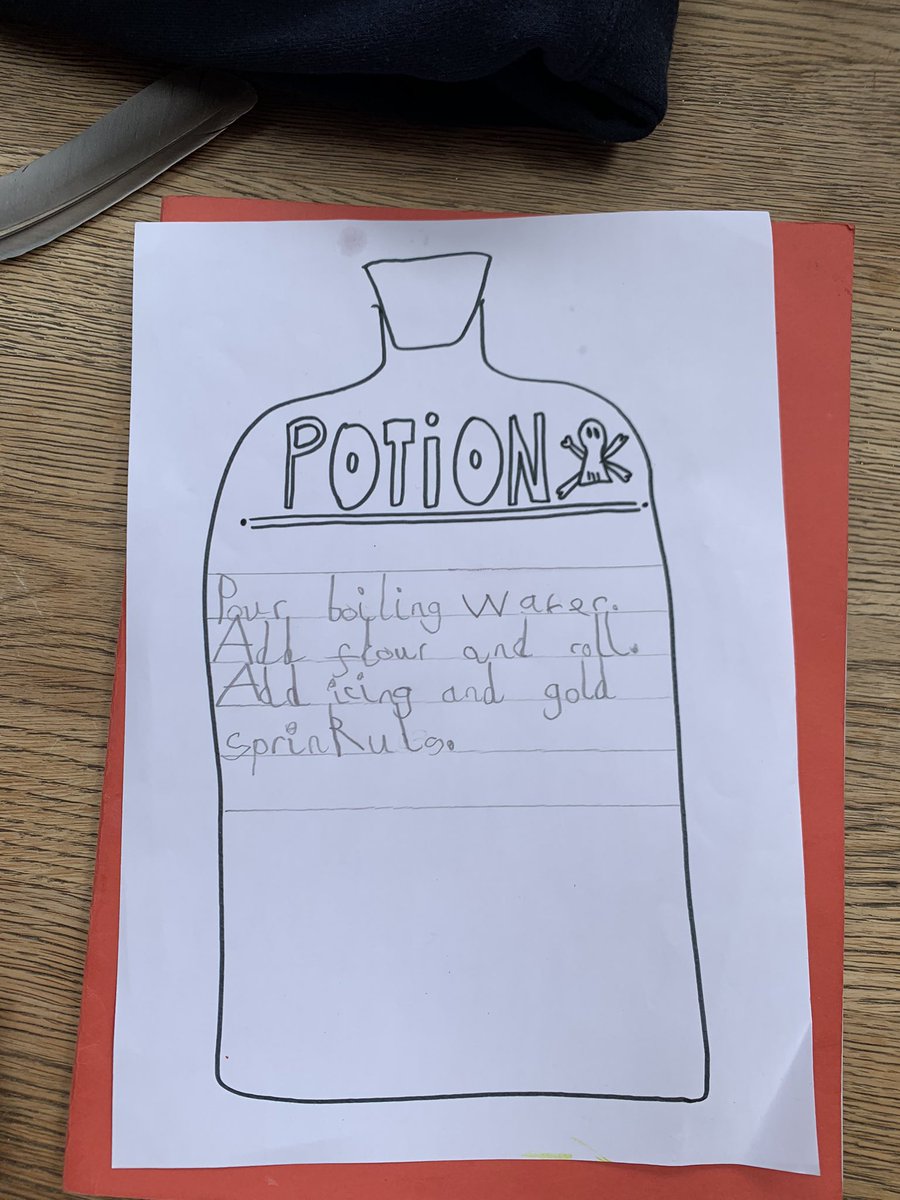 POTiON
Pour boiling Water.
Add flour and roll.
Add icing and gold
sprinkuls.